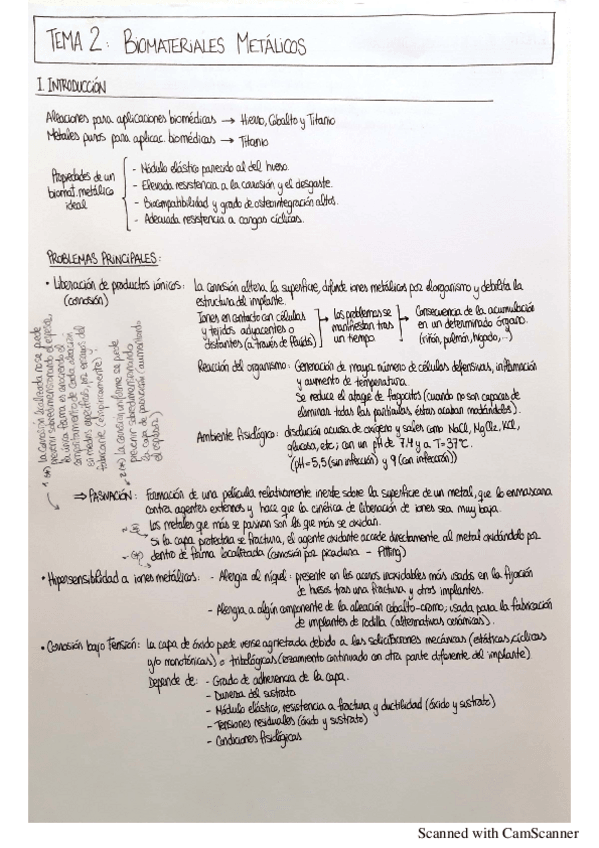 TEMA 2: BIOMATERIALES METÁLICOS
I. INTRODUCCIÓN
Aleaciones para aplicaciones biomédicas → Hierro, Cobalto y Titanio
Metales puros para aplicac. biomédicas → Titanio
Propiedades de un biomat. metálico ideal
- Módulo elástico parecido al del hueso.
- Elevada resistencia a la corrosión y el desgaste.
- Biocompatibilidad y grado de osteointegración altos.
- Adecuada resistencia a cargas cíclicas.
PROBLEMAS PRINCIPALES:
• Liberación de productos iónicos: La corrosión altera la superficie, difunde iones metálicos por el organismo y debilita la
(corrosión) estructura del implante.
Iones en contacto con células y tejidos adyacentes o distantes (a través de fluidos) → Los problemas se manifiestan tras un tiempo → Consecuencia de la acumulación en un determinado órgano. (riñón, pulmón, hígado, ...)
Reacción del organismo: Generación de mayor número de células defensivas, inflamación
y aumento de temperatura.
Se reduce el ataque de fagocitos (cuando no son capaces de
eliminar todas las partículas éstas acaban matándolos).
Ambiente fisiológico: disolución acuosa de oxígeno y sales como NaCl, MgCl2, KCl,
glucosa, etc; con un pH de 7.4 y a T=37ºC.
(pH=5,5 (sin infección) y 9 (con infección))
1 (*) La corrosión localizada no se puede
prevenir sobredimensionando el espesor,
la única forma es conociendo el
comportamiento de cada aleación
en medios específicos, por ensayo del
fabricante (empíricamente)
2 (*) La corrosión uniforme se puede
prevenir sobredimensionando
la capa de pasivación (aumentando
el espesor)
⇒ PASIVACIÓN: Formación de una película relativamente inerte sobre la superficie de un metal, que lo enmascara
contra agentes externos y hace que la cinética de liberación de iones sea muy baja.
2 (*) Los metales que más se pasivan son los que más se oxidan.
Si la capa protectora se fractura, el agente oxidante accede directamente al metal oxidándolo por
1 (*) dentro de forma localizada (corrosión por picadura - Pitting)
• Hipersensibilidad a iones metálicos: - Alergia al níquel: presente en los aceros inoxidables más usados en la fijación
de huesos tras una fractura y otros implantes.
- Alergia a algún componente de la aleación cobalto-cromo; usada para la fabricación
de implantes de rodilla (alternativas cerámicas).
• Corrosión bajo Tensión: La capa de óxido puede verse agrietada debido a las solicitaciones mecánicas (estáticas, cíclicas
y/o monotónicas) o tribológicas (rozamiento continuado con otra parte diferente del implante)
Depende de: - Grado de adherencia de la capa.
- Dureza del sustrato
- Módulo elástico, resistencia a fractura y ductilidad (óxido y sustrato)
- Tensiones residuales (óxido y sustrato)
- Condiciones fisiológicas
Scanned with CamScanner